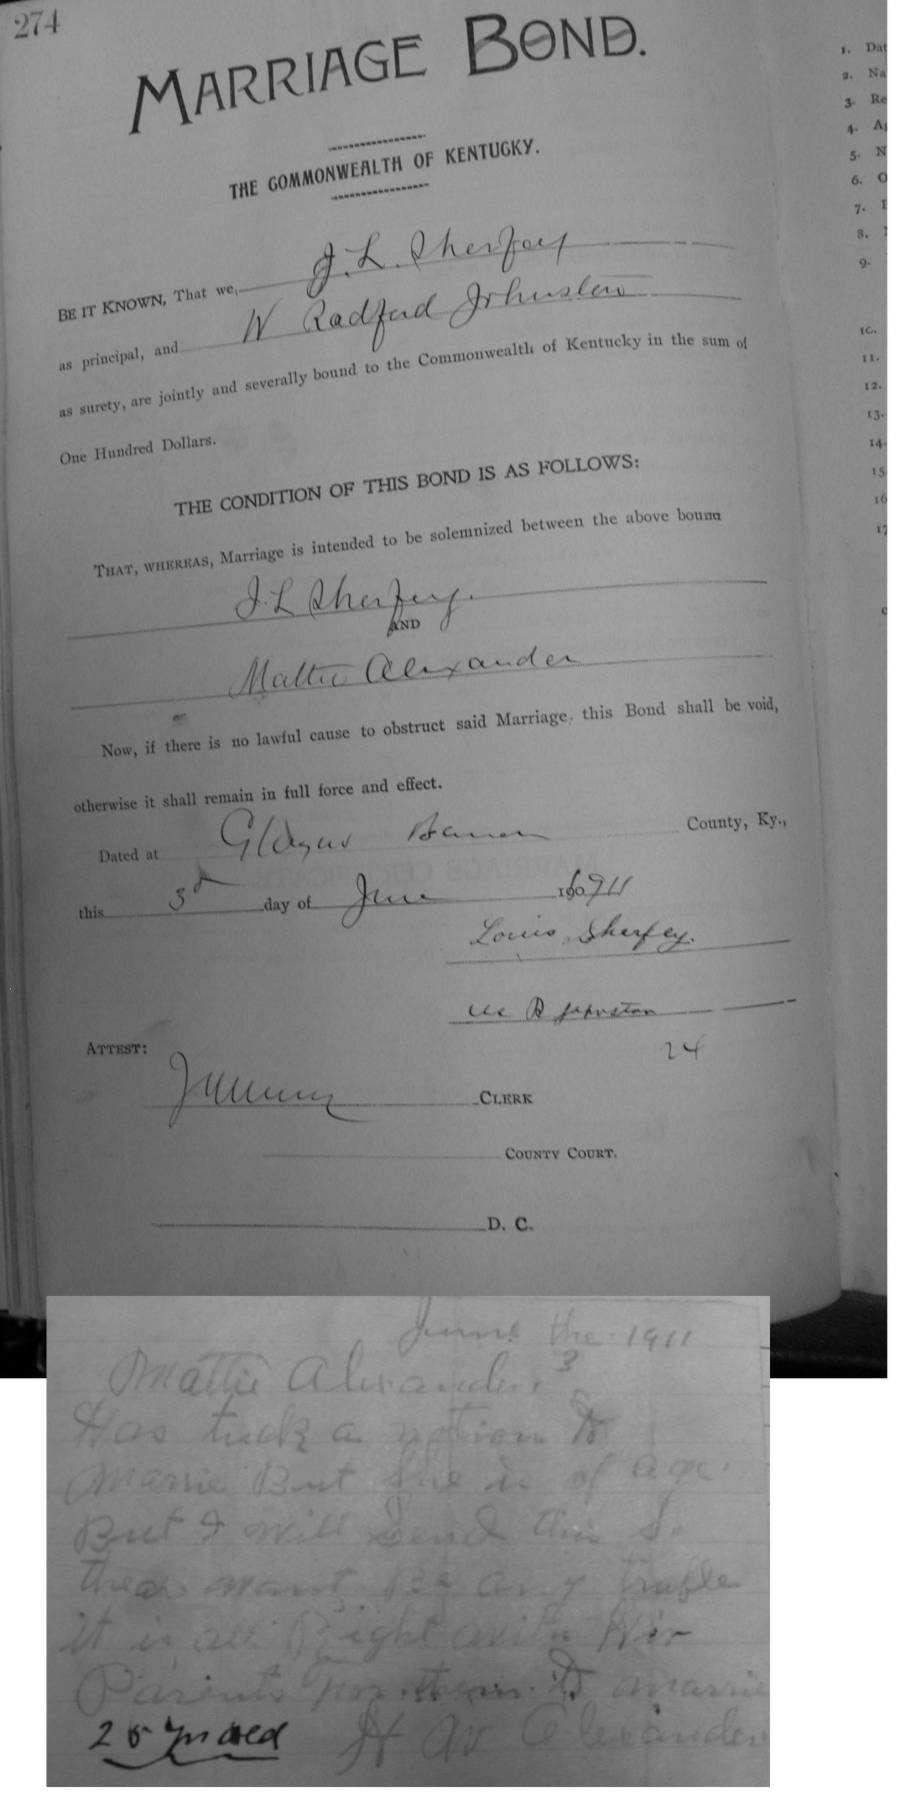 274
MARRIAGE BOND.
THE COMMONWEALTH OF KENTUCKY.
BE IT KNOWN, That we, J. L. Sherfey
as principal, and W Radford Johnston
as surety, are jointly and severally bound to the Commonwealth of Kentucky in the sum of
One Hundred Dollars.
THE CONDITION OF THIS BOND IS AS FOLLOWS:
THAT, WHEREAS, Marriage is intended to be solemnized between the above bound
J. L Sherfey.
AND
Mattie Alexander
Now, if there is no lawful cause to obstruct said Marriage, this Bond shall be void,
otherwise it shall remain in full force and effect.
Dated at Glasgow Barren County, Ky.,
this 3d day of June 1911
Louis Sherfey.
W R Johnston
24
ATTEST:
CLERK
COUNTY COURT.
D. C.
1. Dat
2. Na
3. Re
4. A
5. N
6. O
7.
8.
9.
10.
11.
12.
13.
14.
15
16
17
June the 1911
3
Mattie Alexander,
Has tuck a notion to
marrie But she is of age.
But I will Send this So
thear want Be any truble
it is all Right with Hir
Parents for them to marrie
H W Alexander
25 yrs old